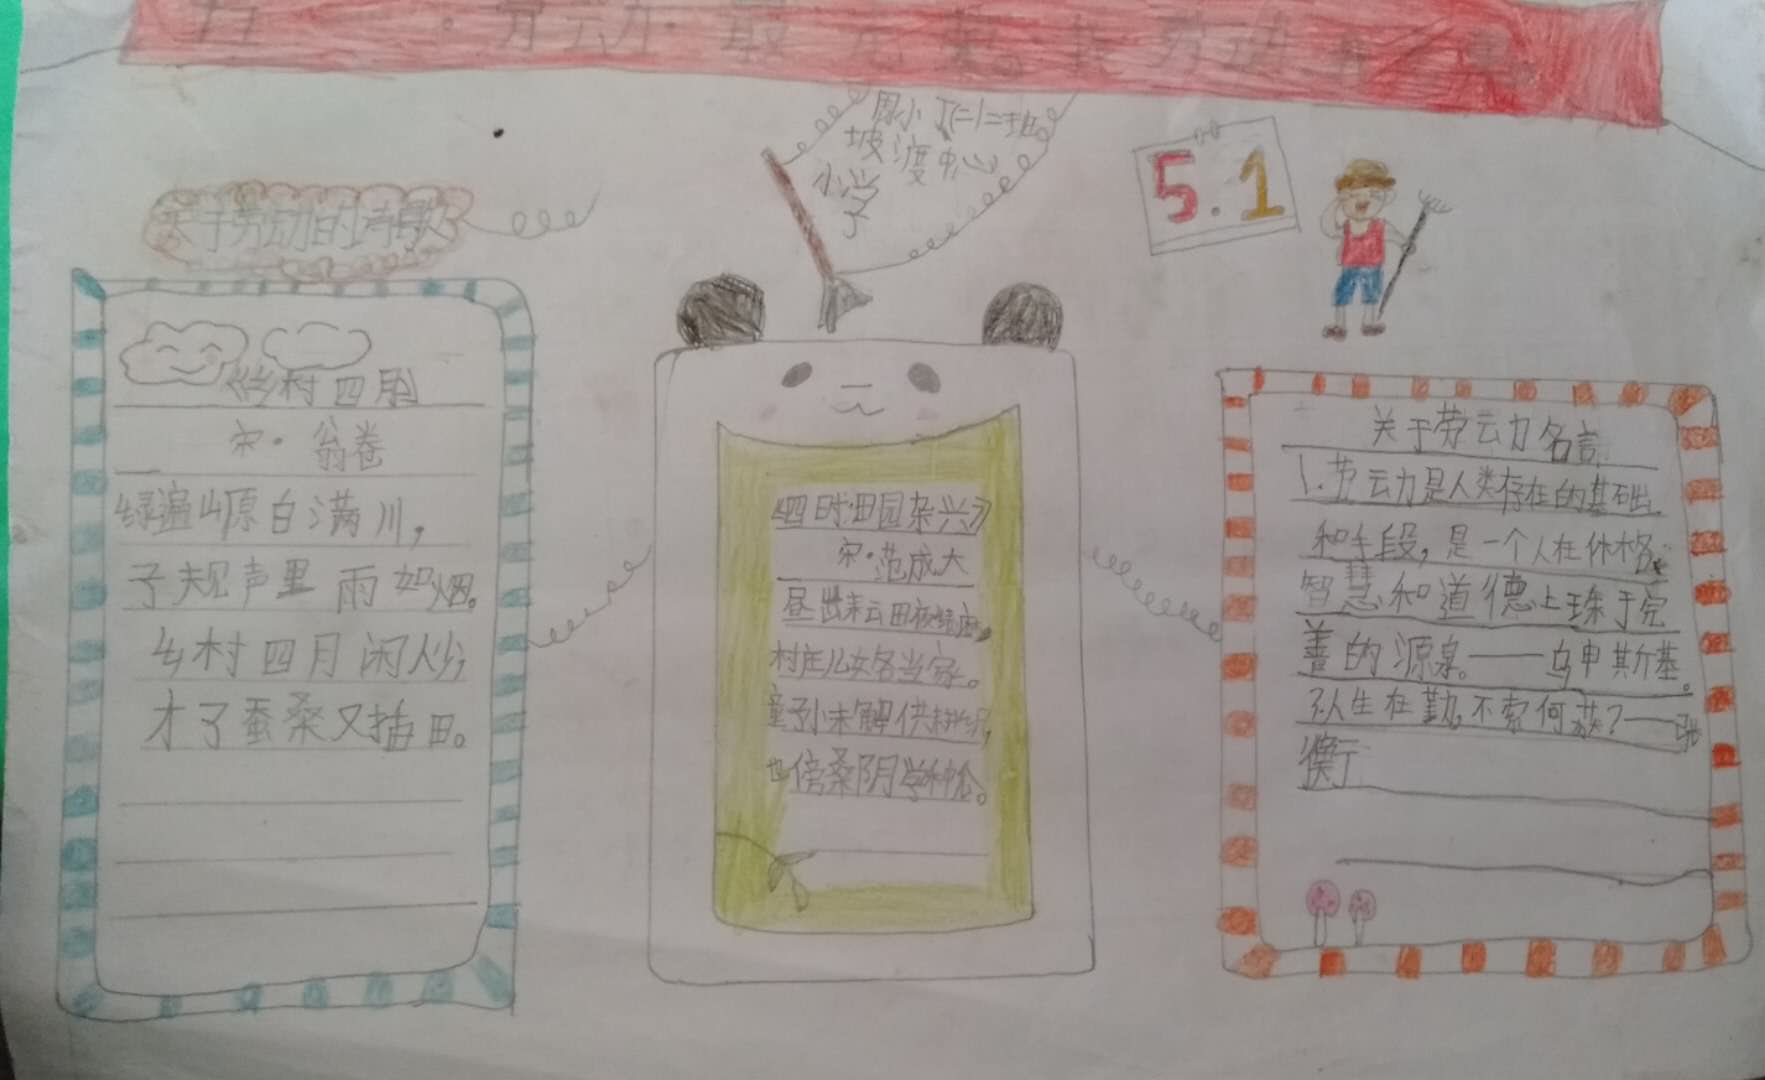 劳动最光
周小 二班
坡渡中心
小学
5.1
关于劳动的诗歌
《乡村四月》
宋·翁卷
绿遍山原白满川，
子规声里雨如烟。
乡村四月闲人少，
才了蚕桑又插田。
《四时田园杂兴》
宋·范成大
昼出耘田夜绩麻，
村庄儿女各当家。
童子小未解供耕织，
也傍桑阴学种仑。
关于劳动名言
1.劳动是人类存在的基础
和手段，是一个人在体格，
智慧和道德上臻于完
善的源泉。——乌申斯基。
2人生在勤，不索何获？——张
衡